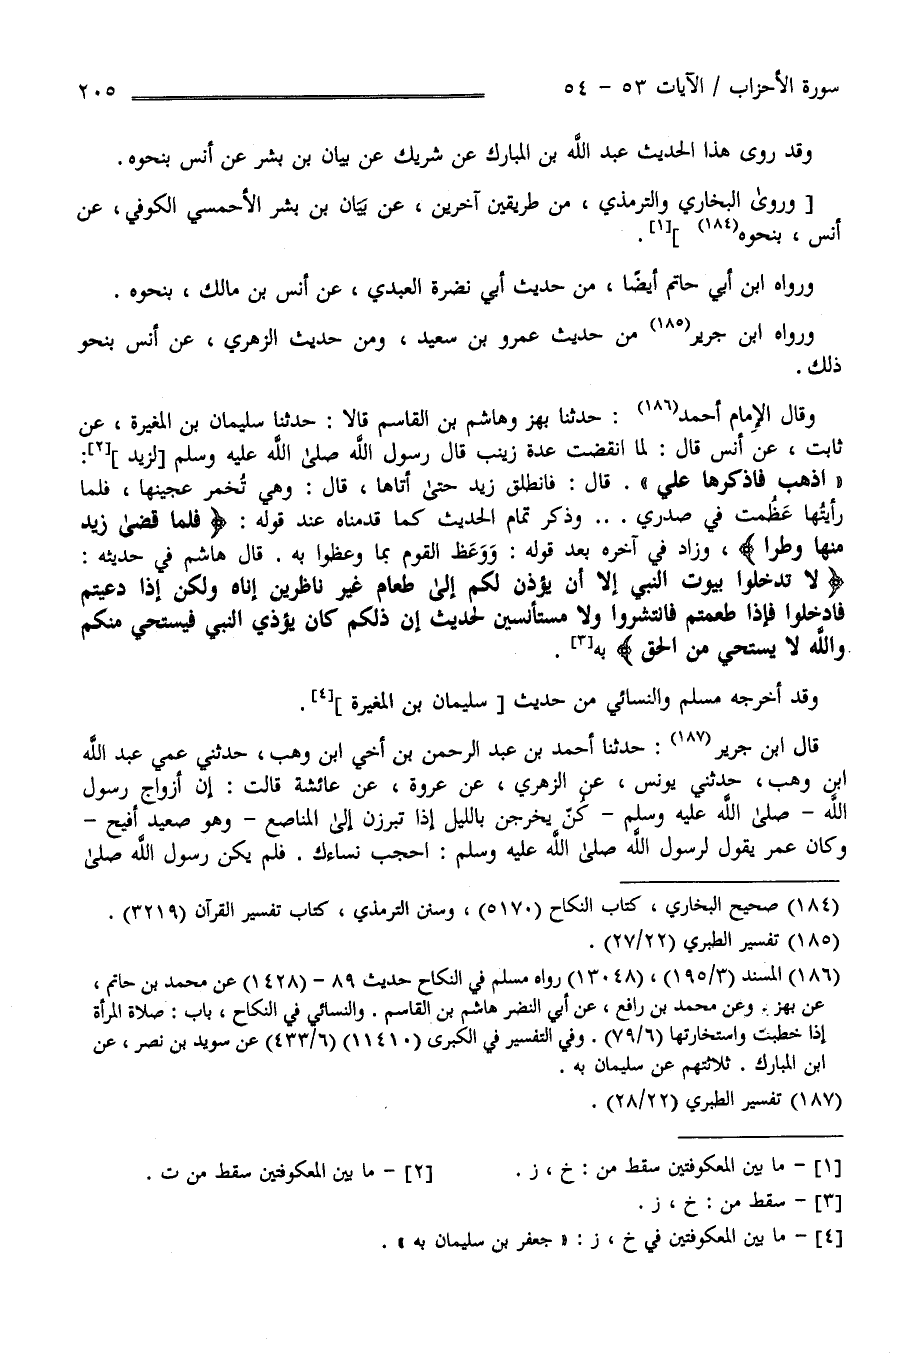 سورة الأحزاب / الآيات ٥٣ - ٥٤ ٢٠٥
وقد روى هذا الحديث عبد الله بن المبارك عن شريك عن بيان بن بشر عن أنس بنحوه .
[ وروىٰ البخاري والترمذي ، من طريقين آخرين ، عن بَيَان بن بشر الأحمسي الكوفي ، عن
أنس ، بنحوه(١٨٤) ][١] .
ورواه ابن أبي حاتم أيضًا ، من حديث أبي نضرة العبدي ، عن أنس بن مالك ، بنحوه .
ورواه ابن جرير(١٨٥) من حديث عمرو بن سعيد ، ومن حديث الزهري ، عن أنس بنحو
ذلك .
وقال الإمام أحمد(١٨٦) : حدثنا بهز وهاشم بن القاسم قالا : حدثنا سليمان بن المغيرة ، عن
ثابت ، عن أنس قال : لما انقضت عدة زينب قال رسول الله صلىٰ الله عليه وسلم [لزيد ][٢]:
« اذهب فاذكرها علي » . قال : فانطلق زيد حتىٰ أتاها ، قال : وهي تُخمر عجينها ، فلما
رأيتُها عَظُمت في صدري . .. وذكر تمام الحديث كما قدمناه عند قوله : ﴿ فلما قضىٰ زيد
منها وطرا ﴾ ، وزاد في آخره بعد قوله : وَوَعَظ القوم بما وعظوا به . قال هاشم في حديثه :
﴿ لا تدخلوا بيوت النبي إلا أن يؤذن لكم إلىٰ طعام غير ناظرين إناه ولكن إذا دعيتم
فادخلوا فإذا طعمتم فانتشروا ولا مستأنسين لحديث إن ذلكم كان يؤذي النبي فيستحي منكم
والله لا يستحي من الحق ﴾ به[٣] .
وقد أخرجه مسلم والنسائي من حديث [ سليمان بن المغيرة ][٤] .
قال ابن جرير(١٨٧) : حدثنا أحمد بن عبد الرحمن بن أخي ابن وهب ، حدثني عمي عبد الله
ابن وهب ، حدثني يونس ، عن الزهري ، عن عروة ، عن عائشة قالت : إن أزواج رسول
الله - صلىٰ الله عليه وسلم - كُنّ يخرجن بالليل إذا تبرزن إلىٰ المناصع - وهو صعيد أفيح -
وكان عمر يقول لرسول الله صلىٰ الله عليه وسلم : احجب نساءك . فلم يكن رسول الله صلىٰ
(١٨٤) صحيح البخاري ، كتاب النكاح (٥١٧٠) ، وسنن الترمذي ، كتاب تفسير القرآن (٣٢١٩) .
(١٨٥) تفسير الطبري (٢٧/٢٢) .
(١٨٦) المسند (١٩٥/٣) ، (١٣٠٤٨) رواه مسلم في النكاح حديث ٨٩ - (١٤٢٨) عن محمد بن حاتم ،
عن بهز . وعن محمد بن رافع ، عن أبي النضر هاشم بن القاسم . والنسائي في النكاح ، باب : صلاة المرأة
إذا خطبت واستخارتها (٧٩/٦) . وفي التفسير في الكبرى (١١٤١٠) (٤٣٣/٦) عن سويد بن نصر ، عن
ابن المبارك . ثلاثتهم عن سليمان به .
(١٨٧) تفسير الطبري (٢٨/٢٢) .
[١] - ما بين المعكوفتين سقط من : خ ، ز . [٢] - ما بين المعكوفتين سقط من ت .
[٣] - سقط من : خ ، ز .
[٤] - ما بين المعكوفتين في خ ، ز : « جعفر بن سليمان به » .